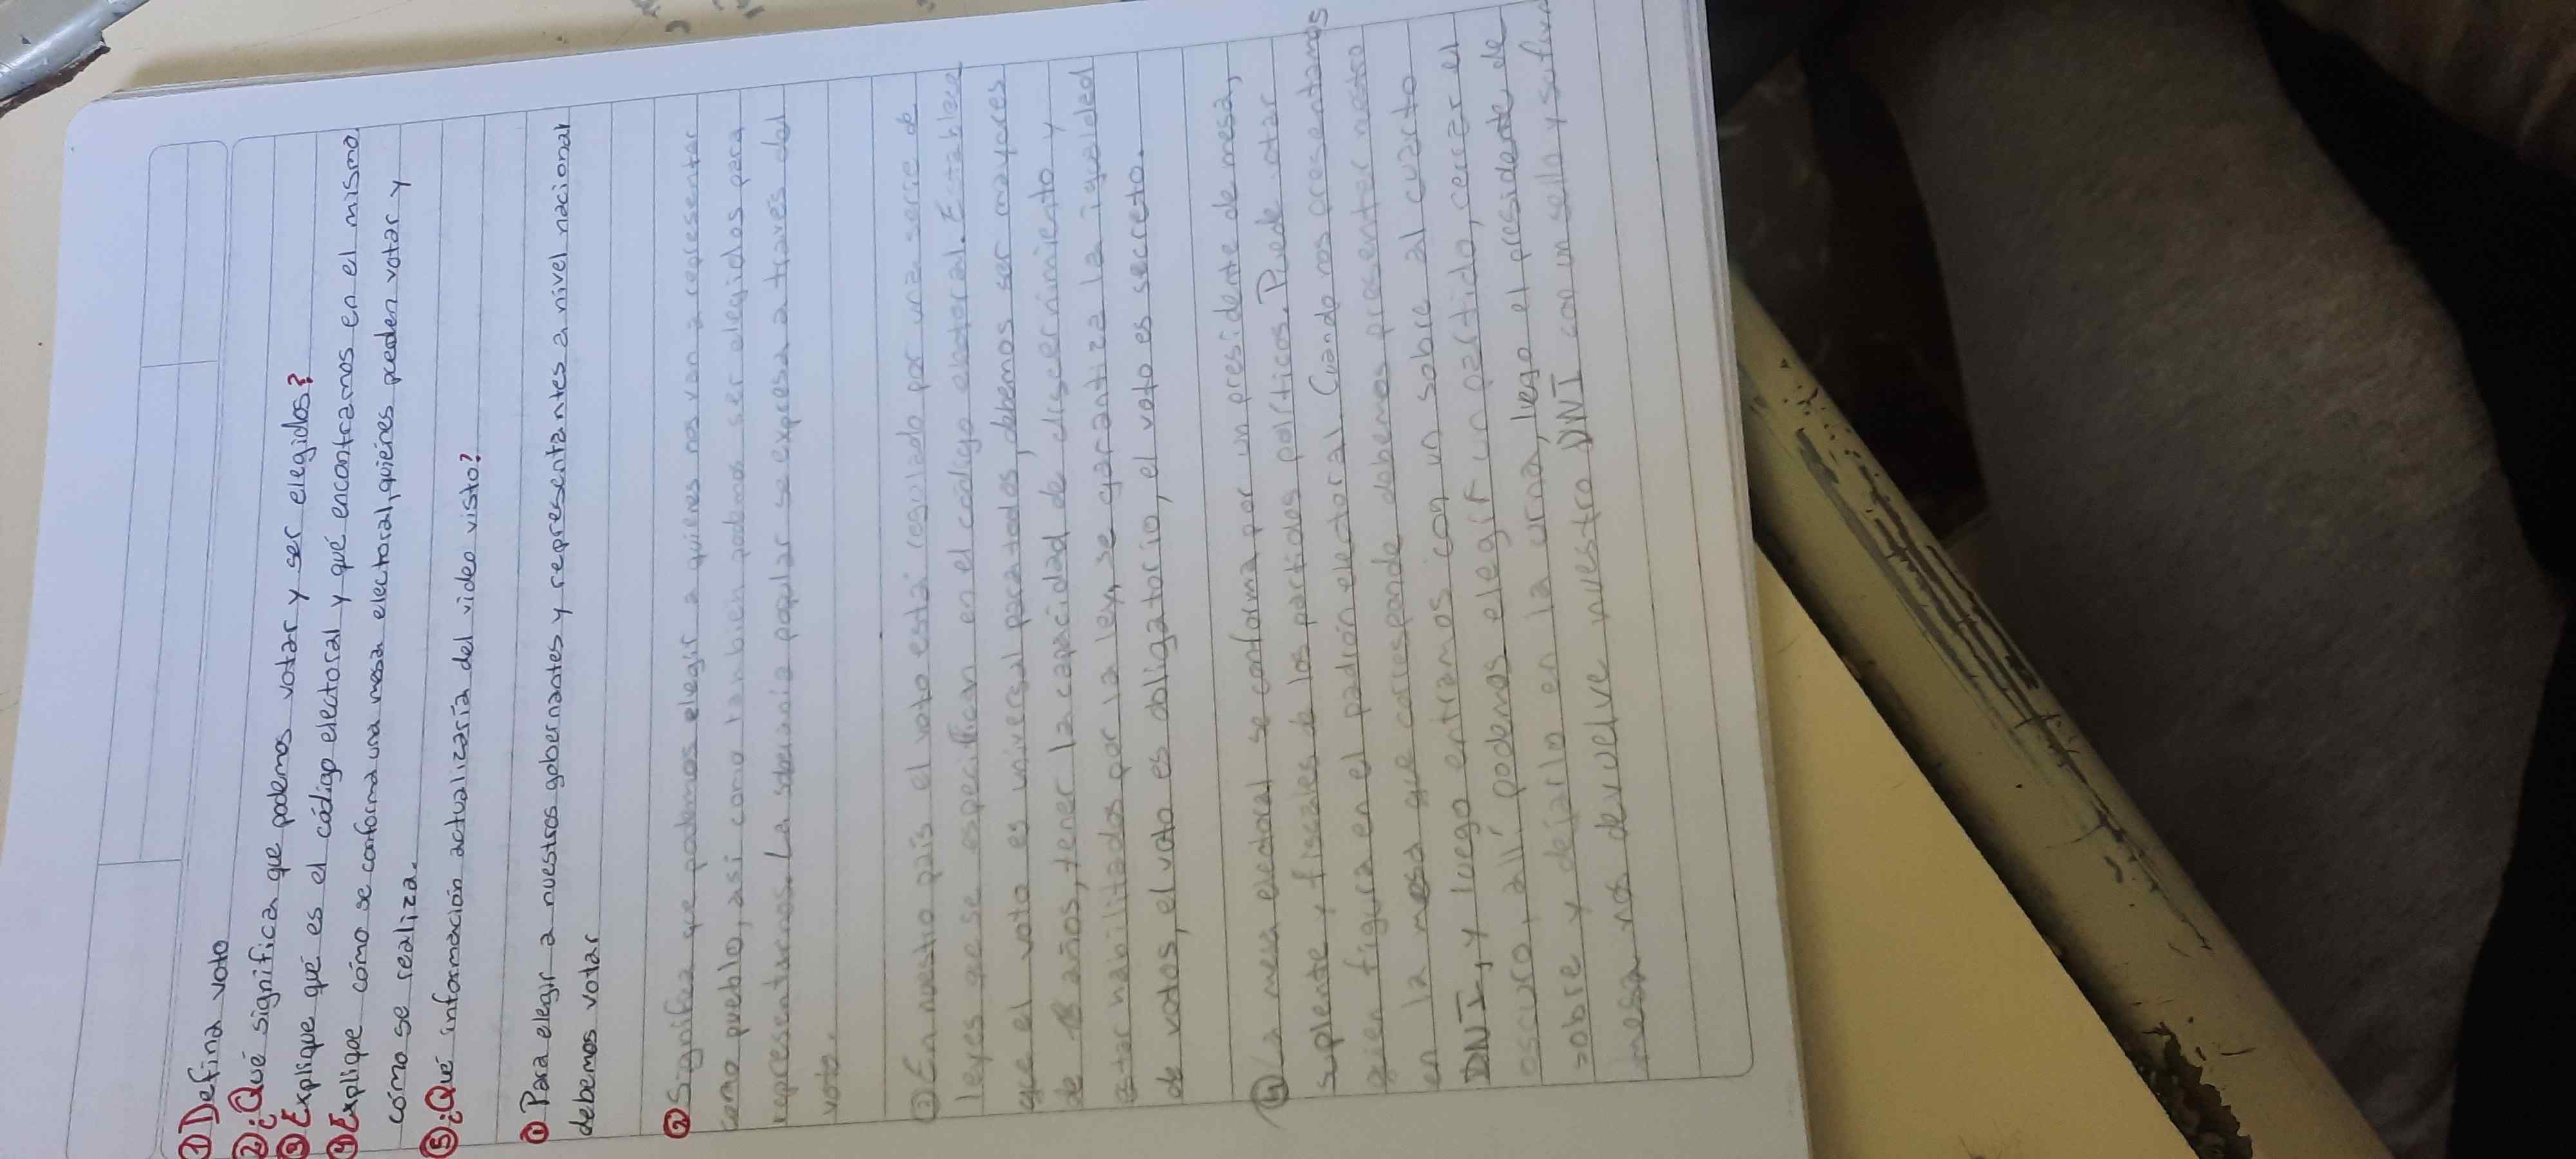 ① Defina voto
② ¿Qué significa que podemos votar y ser elegidos?
③ Explique qué es el código electoral y qué encontramos en el mismo
④ Explique cómo se conforma una mesa electoral, quiénes pueden votar y
cómo se realiza.
⑤ ¿Qué información actualizaría del video visto?
① Para elegir a nuestros gobernantes y representantes a nivel nacional
debemos votar
② Significa que podemos elegir a quienes nos van a representar
como pueblo, así como también podemos ser elegidos para
representarnos. La soberanía popular se expresa a través del
voto.
③ En nuestro país el voto está regulado por una serie de
leyes que se especifican en el código electoral. Establece
que el voto es universal para todos, debemos ser mayores
de 18 años, tener la capacidad de discernimiento y
estar habilitados por la ley, se garantiza la igualdad
de votos, el voto es obligatorio, el voto es secreto.
④ La mesa electoral se conforma por un presidente de mesa,
suplente y fiscales de los partidos políticos. Puede votar
quien figura en el padrón electoral. Cuando nos presentamos
en la mesa que corresponde debemos presentar nuestro
DNI, y luego entramos con un sobre al cuarto
oscuro, allí podemos elegir un partido, cerrar el
sobre y dejarlo en la urna, luego el presidente de
mesa nos devuelve nuestro DNI con un sello y su